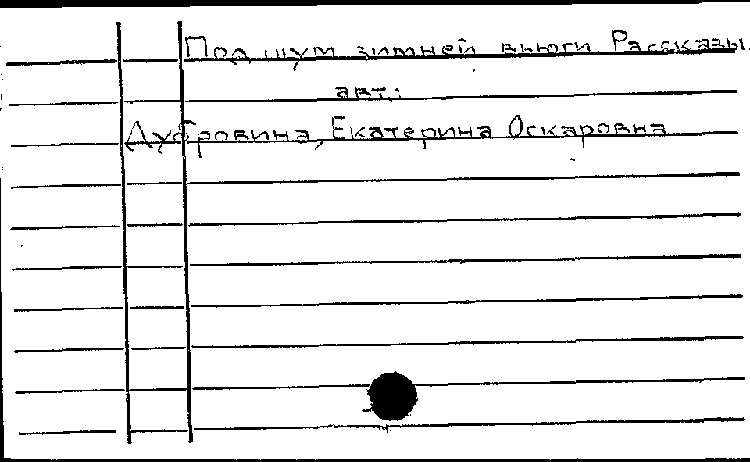 Под шум зимней вьюги Рассказы.
авт.:
Дубровина, Екатерина Оскаровна